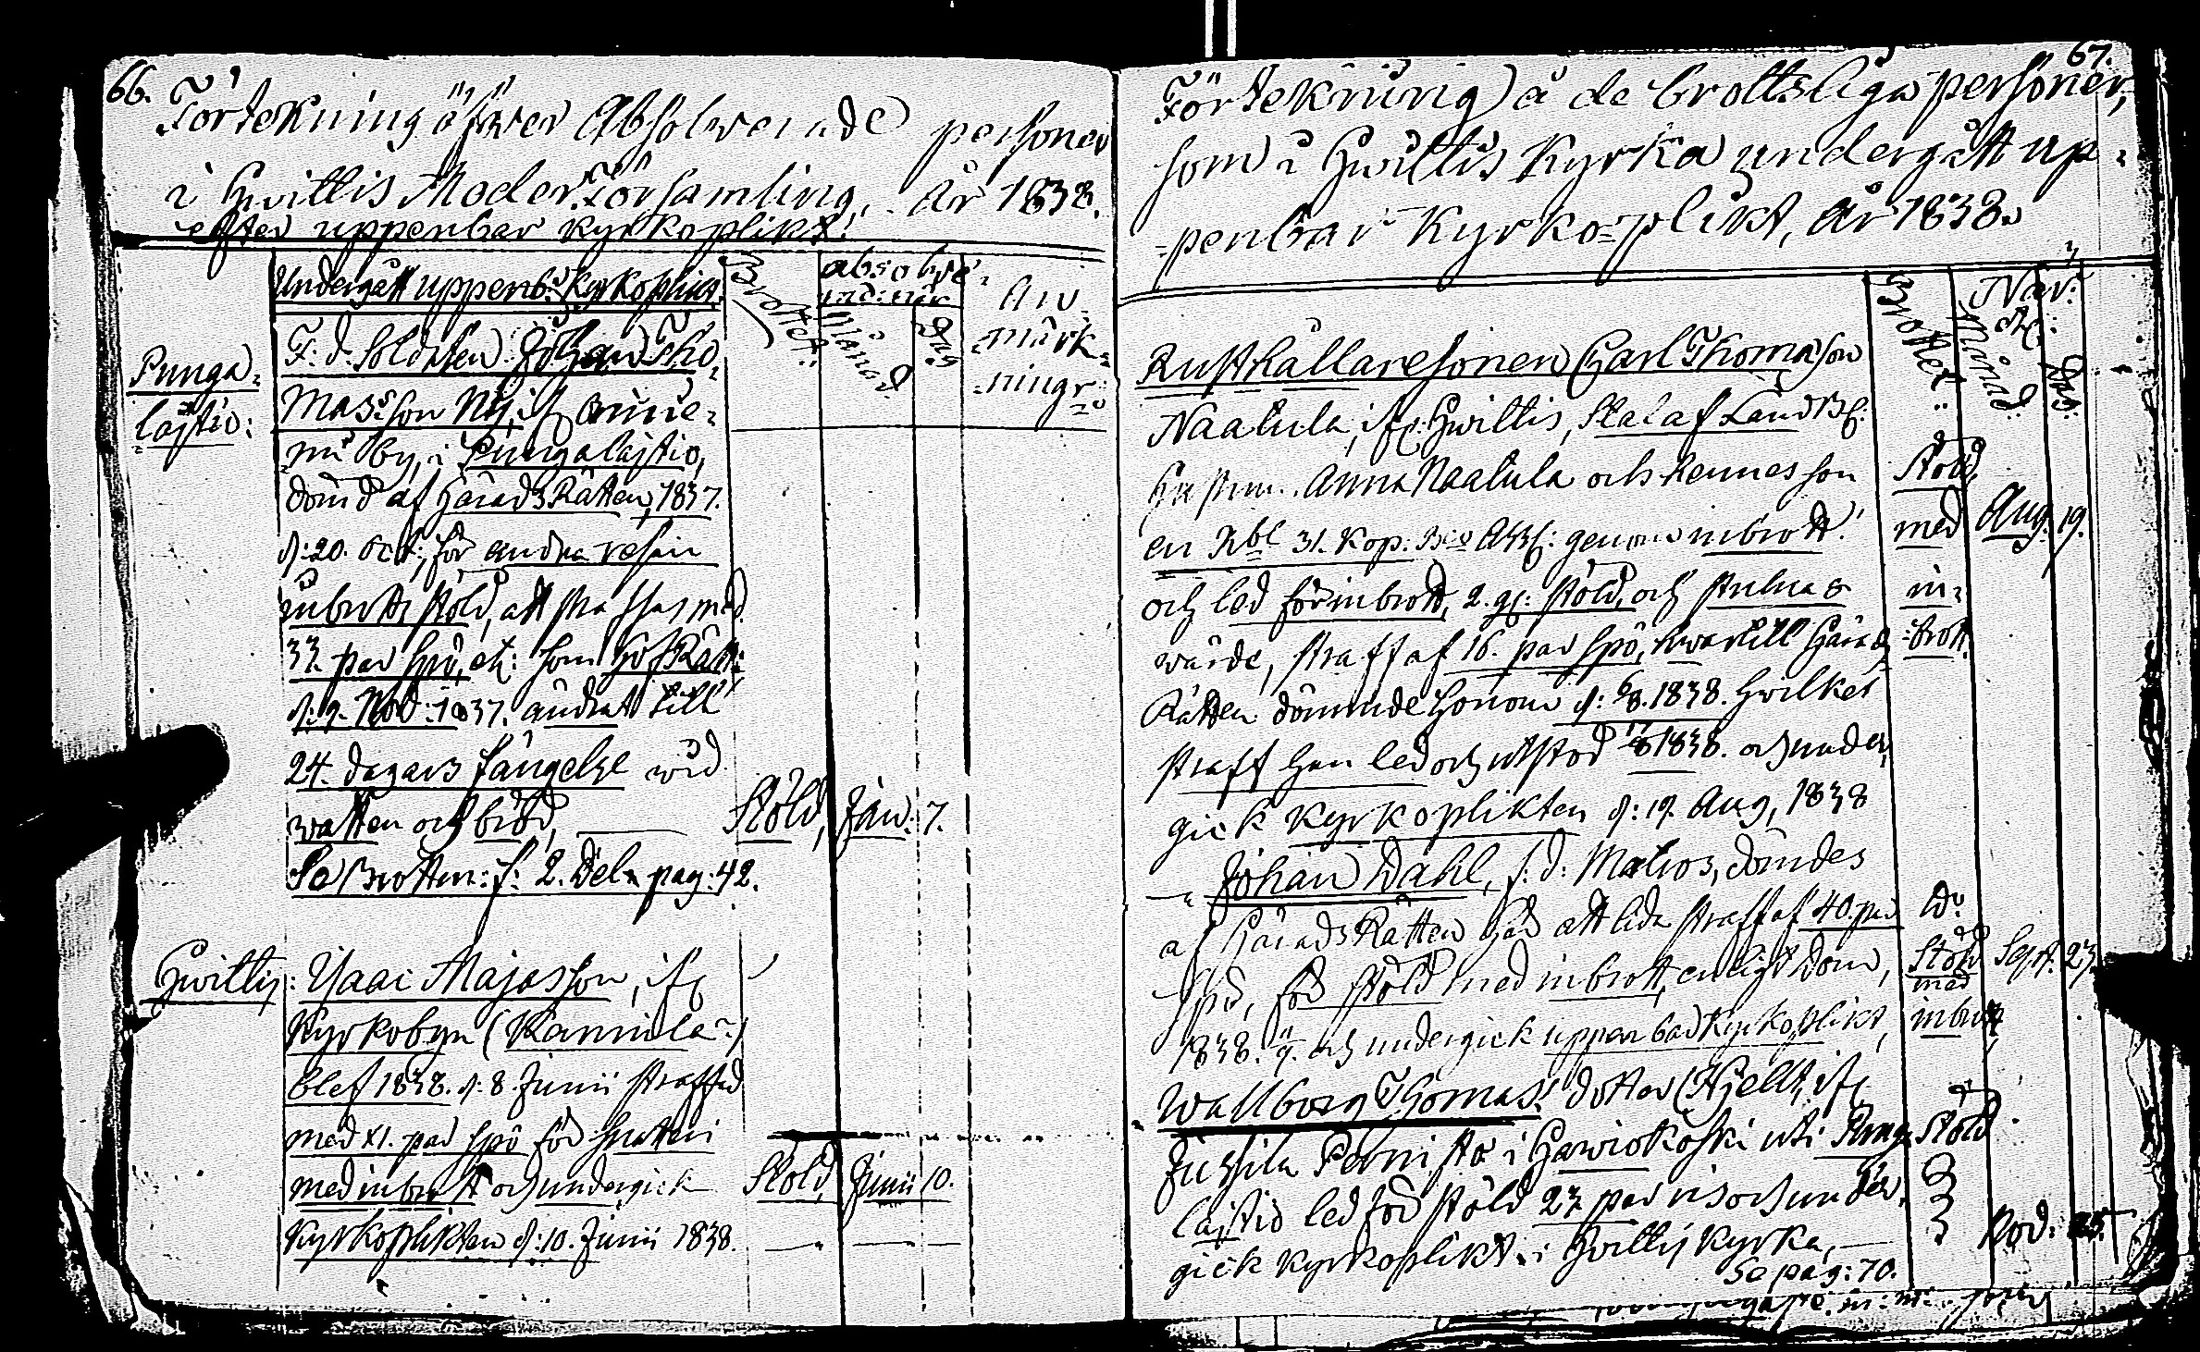 66.
Förtekning öfwer Absolwerade personer
i Hwittis Moder Församling, år 1838.
efter uppenbar kyrkoplikt.
Undergått uppenb: kyrkoplikt.
Brottet:
absolve-
Månad
Dag
An-
märk-
ningr:
Punga-
lajtio:
F: d: Soldaten Johan Tho-
masson Ny, ifr
by, i Pungalajtio,
dömd af HäradsRätten, 1837.
d: 20. Oct:, för andra resan
inbrotts stöld, att straffas med
33. par spö, etc: som HofRätt:
d: 9. Nov: 1837. ändrat till
24. dagars fängelse wid
watten och bröd,
Stöld, Jan: 7.
Se Brotten: f: 2. Del. pag: 42.
Hwittis:
Isaac Majasson, ifr
Kyrkobyn (Kannila)
blef 1838. d: 8. Junii straffad
med XI. par spö för snatteri
med inbrott och undergick
Stöld, Junii 10.
Kyrkoplikten d: 10. Junii 1838.
67.
Förtekning å de brottsliga personer,
som i Hwittis Kyrka undergått up-
penbar Kyrko-plikt, år 1838.
Brottet:
När:
Månad:
Dag:
Rusthållaresonen Carl Thomasson
Naatula, ifr: Hwittis, Stal af
Anna Naatula och hennes son
Stöld,
en Rbl 31. Kop: genom inbrott
med
Aug: 19.
och led för inbrott, 2. gr: stöld, och stulna
in-
wärde, straff af 16. par spö, hwartill Härads
brott.
Rätten dömmde honom d: 6/8. 1838. Hvilket
straff han led och utstod 1838. och under-
gick kyrkoplikten d: 19. Aug, 1838
Johan Dahl, f: d: Matros, dömdes
af HäradsRätten här att lida straff af 40. par
Do
spö, för stöld med inbrott, enligt Dom,
Stöld
med
Sept. 23.
1838. och undergick uppenbar Kyrkoplikt,
inbrott
Wallborg Thomasdotter (Hjelt, ifr
Jussila Pernisto i Hawiokoski uti Punga-
Stöld
lajtio led för stöld 23 par ris och under-
gick kyrkoplikt i Hwittis kyrka,
Nov: 25.
Se pag: 70.